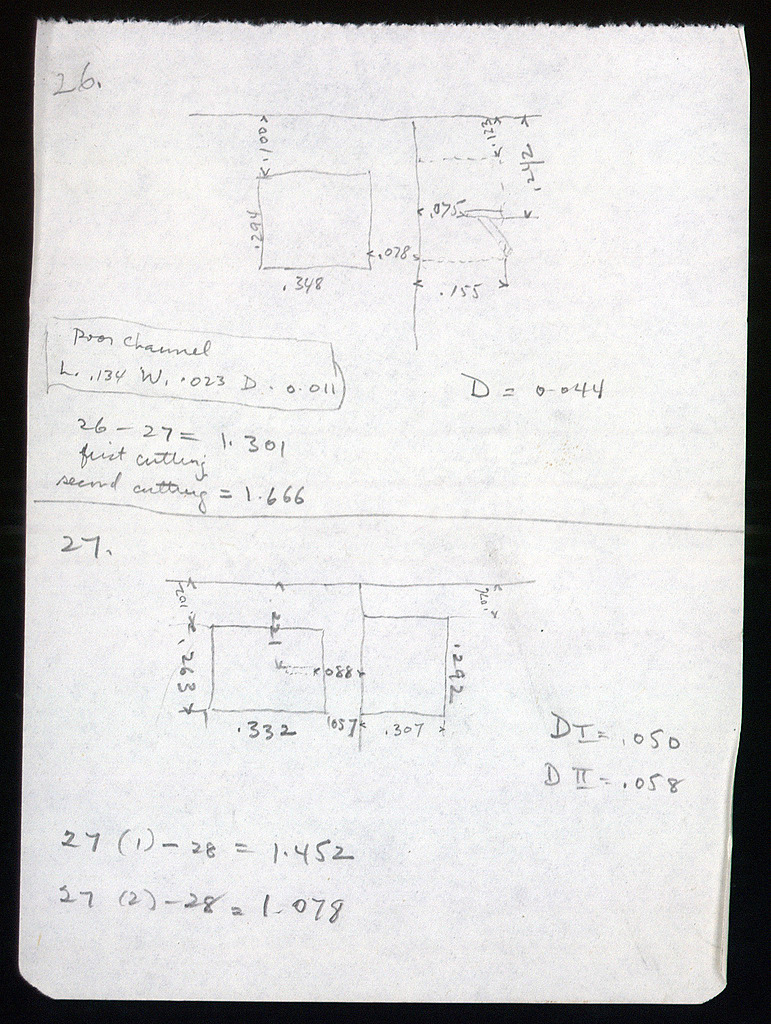 26.
.100
.123
.242
.294
.075
.078
.348
.155
Poor Channel
L. .134 W. .023 D. 0.011
D = 0.044
26 - 27 = 1.301
first cutting
second cutting = 1.666
27.
.107
.221
.076
.263
.088
.292
.332
.057
.307
D I = .050
D II = .058
27 (1) - 28 = 1.452
27 (2) - 28 = 1.078